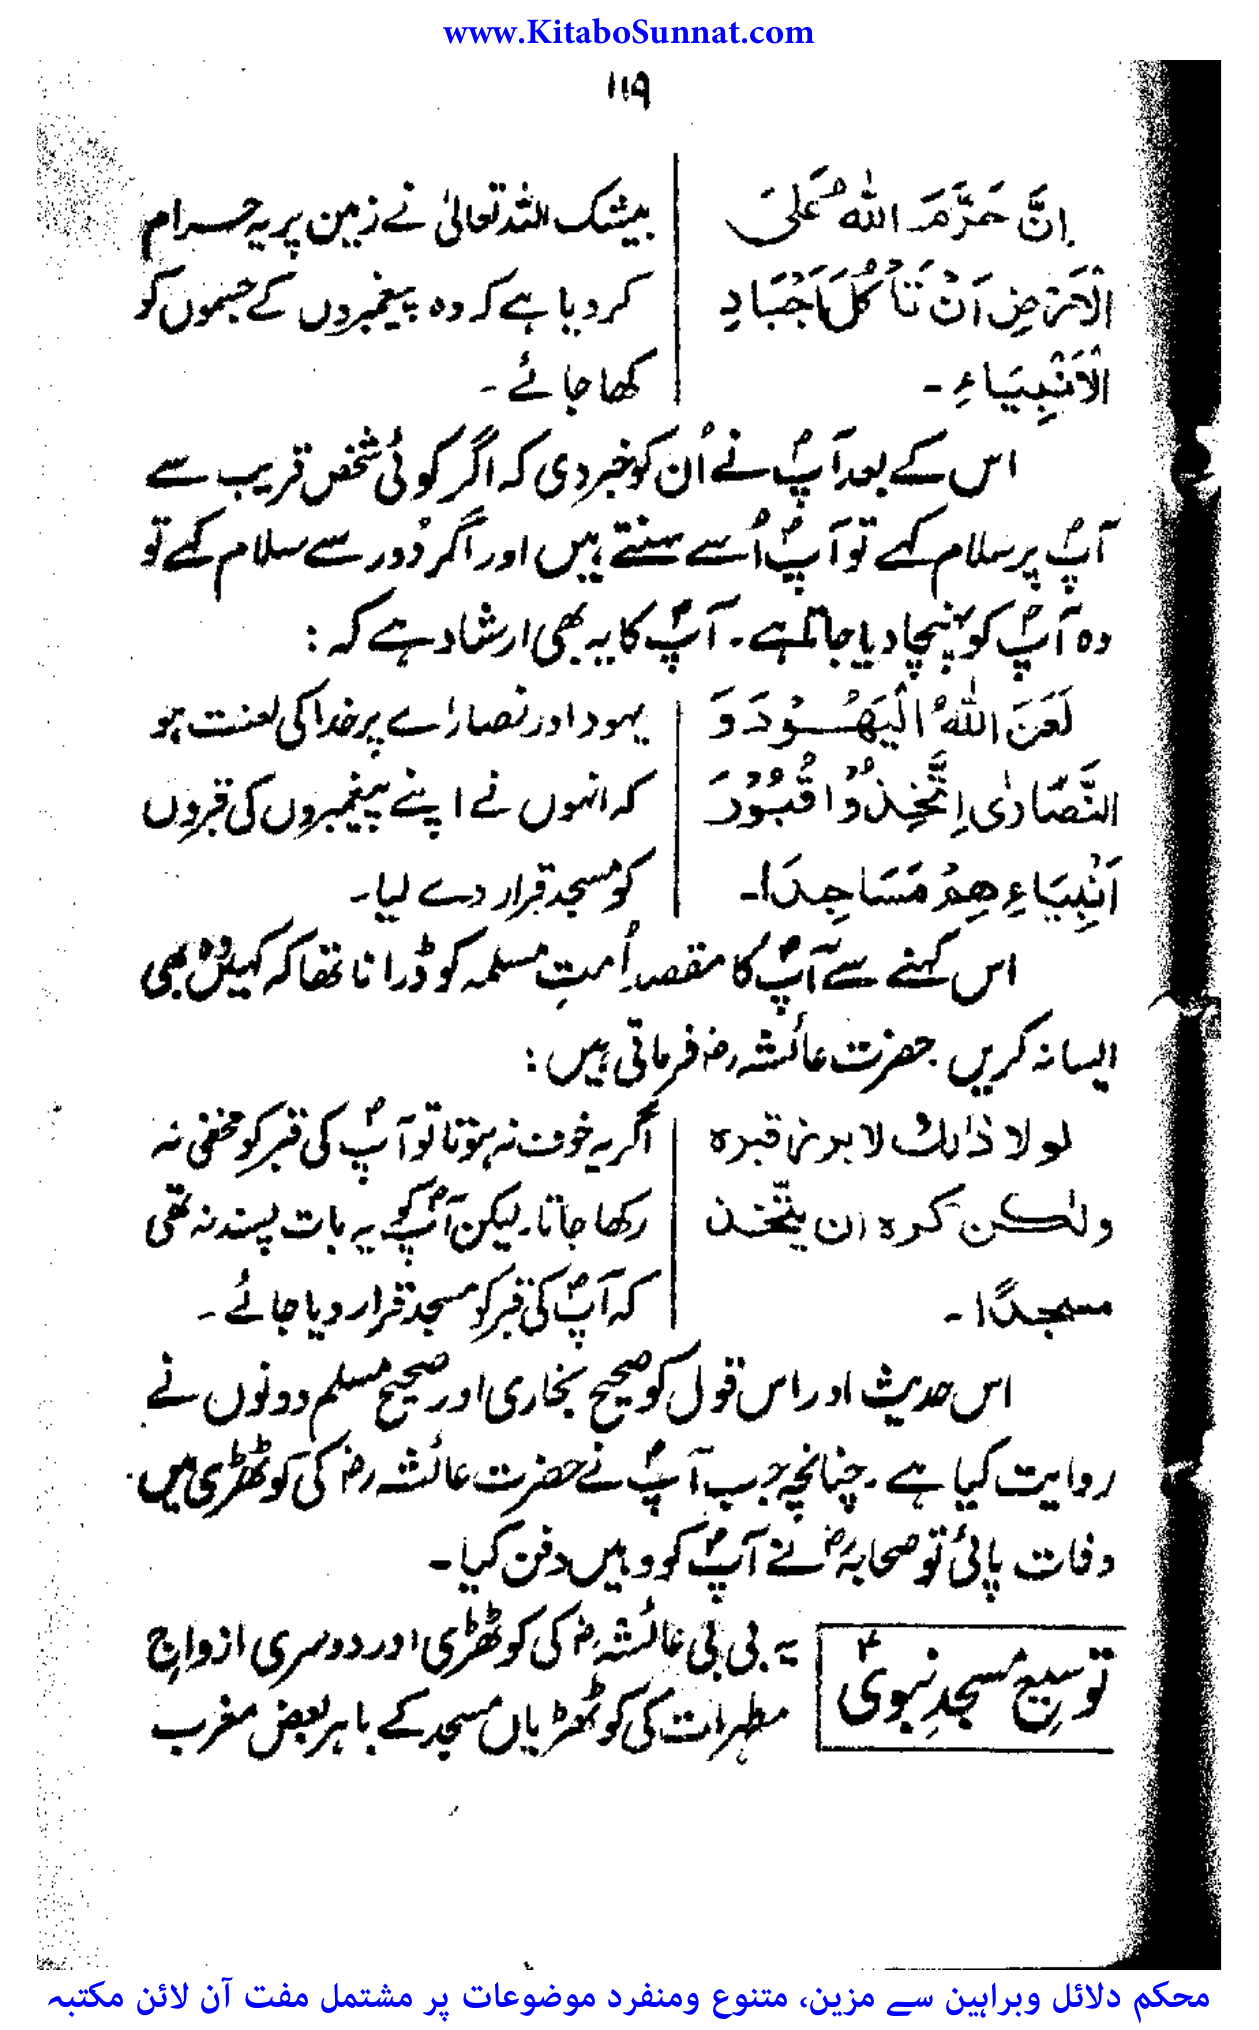 www.KitaboSunnat.com
۱۱۹
اِنَّ حَرَّمَ اللّٰہُ عَلیَ
الْاَرْضِ اَنْ تَأْکُلَ اَجْسَادِ
الْاَنْبِیَاءِ ۔
بیشک اللہ تعالیٰ نے زمین پر یہ حرام
کر دیا ہے کہ وہ پیغمبروں کے جسموں کو
کھا جائے ۔
اس کے بعد آپؐ نے اُن کو خبر دی کہ اگر کوئی شخص قریب سے
آپؐ پر سلام کہے تو آپؐ اُسے سنتے ہیں اور اگر دُور سے سلام کہے تو
وہ آپؐ کو پہنچا دیا جاتا ہے ۔ آپؐ کا یہ بھی ارشاد ہے کہ :
لَعَنَ اللّٰہُ الْیَھُوْدَ وَ
النَّصَارٰی اِتَّخِذُوْا قُبُوْرَ
اَنْبِیَاءِھِمْ مَسَاجِدَا۔
یہود اور نصاراے پر خدا کی لعنت ہو
کہ انہوں نے اپنے پیغمبروں کی قبروں
کو مسجد قرار دے لیا ۔
اس کہنے سے آپؐ کا مقصد اُمتِ مسلمہ کو ڈرانا تھا کہ کہیں وہ بھی
ایسا نہ کریں ۔ حضرت عائشہ رضؓ فرماتی ہیں :
لولا ذالک لابرز قبرہ
ولٰکن کرہ ان یتّخذ
مسجدًا ۔
اگر یہ خوف نہ ہوتا تو آپؐ کی قبر کو مخفی نہ
رکھا جاتا ۔ لیکن آپؐ کو یہ بات پسند نہ تھی
کہ آپؐ کی قبر کو مسجد قرار دیا جائے ۔
اس حدیث اور اس قول کو صحیح بخاری اور صحیح مسلم دونوں نے
روایت کیا ہے ۔ چنانچہ جب آپؐ نے حضرت عائشہ رضؓ کی کوٹھڑی میں
وفات پائی تو صحابہؓ نے آپؐ کو وہیں دفن کیا ۔
توسیع مسجدِ نبویؐ
یہ بی بی عائشہ رضؓ کی کوٹھڑی اور دوسری ازواجِ
مطہرات کی کوٹھڑیاں مسجد کے باہر بعض مغرب
محکم دلائل وبراہین سے مزین، متنوع ومنفرد موضوعات پر مشتمل مفت آن لائن مکتبہ